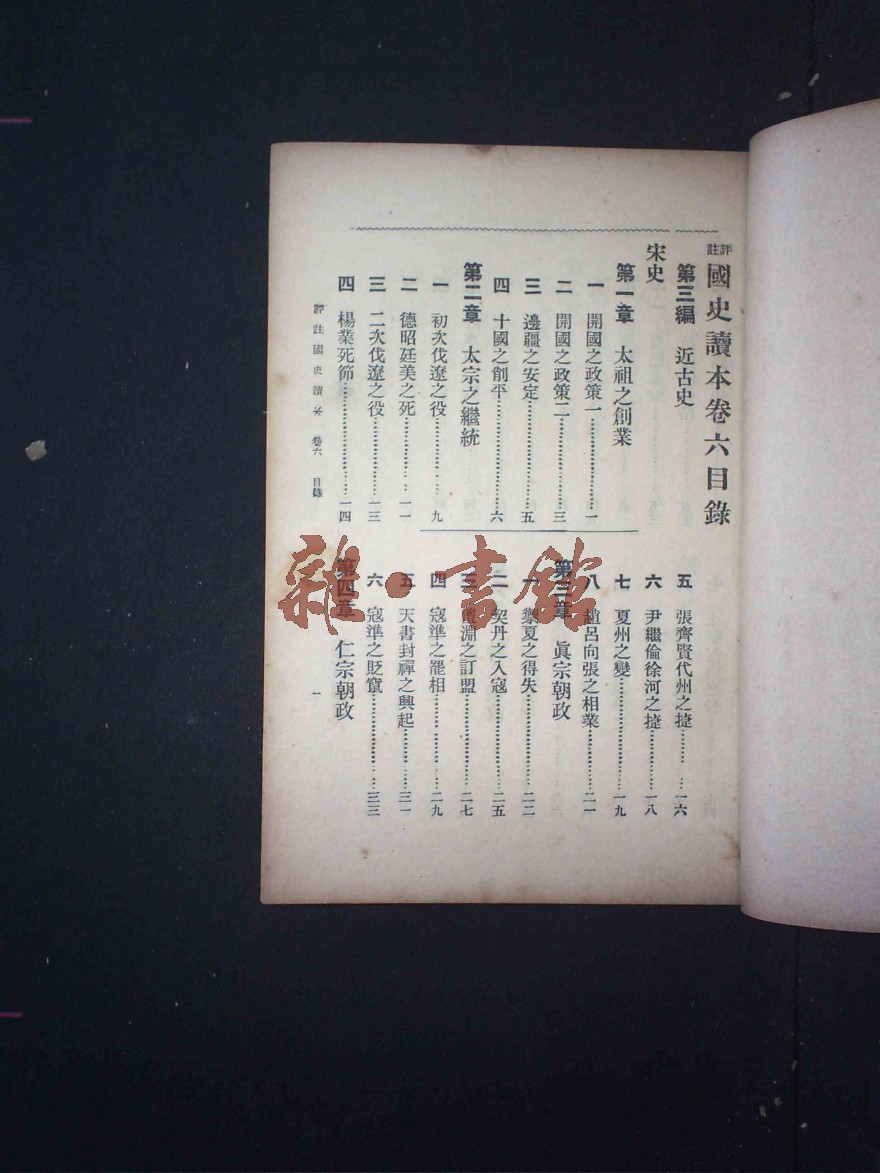 評註國史讀本卷六目錄
第三編　近古史
宋史
第一章　太祖之創業
一　開國之政策一……………一
二　開國之政策二……………三
三　邊疆之安定……………五
四　十國之削平……………六
第二章　太宗之繼統
一　初次伐遼之役……………九
二　德昭廷美之死……………一一
三　二次伐遼之役……………一三
四　楊業死節……………一四
五　張齊賢代州之捷……………一六
六　尹繼倫徐河之捷……………一八
七　夏州之變……………一九
八　趙呂向張之相業……………二一
第三章　眞宗朝政
一　禦夏之得失……………二二
二　契丹之入寇……………二五
三　澶淵之訂盟……………二七
四　寇準之罷相……………二九
五　天書封禪之興起……………三一
六　寇準之貶竄……………三三
第四章　仁宗朝政
評註國史讀本　卷六　目錄
一
雜·書館